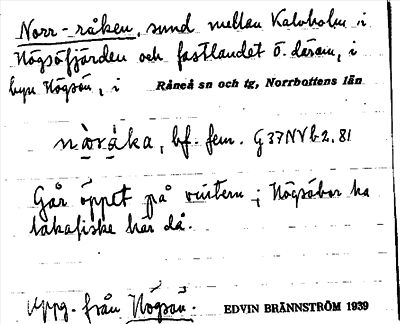 Norr-råken, sund mellan Kalvholm i
Högsöfjärden och fastlandet ö. därom, i
byn Högsön, i Råneå sn och tg, Norrbottens län
nòråka, bf. fem. G37NVb2.81
Går öppet på vintern; Högsöbor ha
lakafiske här då.
Uppg. från Högsön. EDVIN BRÄNNSTRÖM 1939